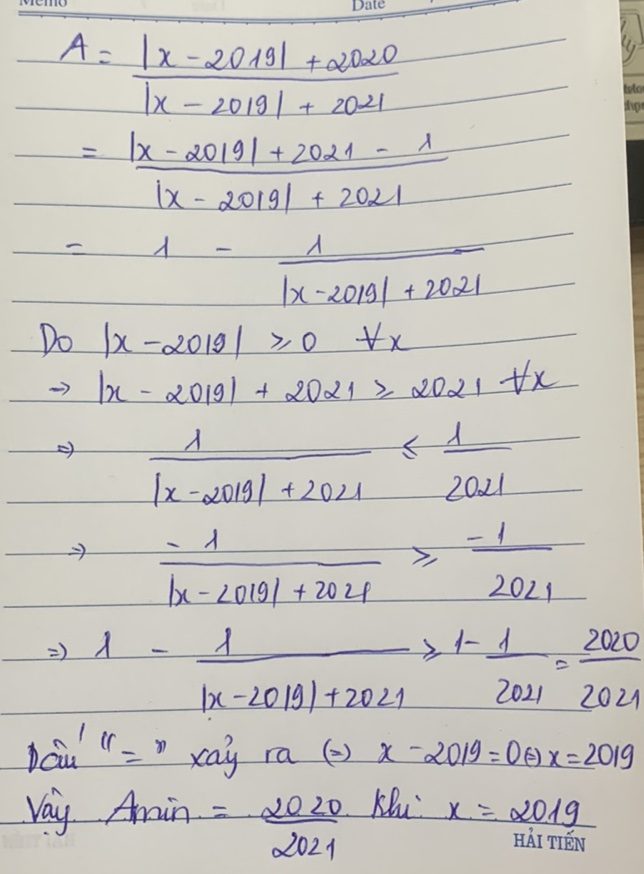 Memo Date
A = |x - 2019| + 2020 / |x - 2019| + 2021
= |x - 2019| + 2021 - 1 / |x - 2019| + 2021
= 1 - 1 / |x - 2019| + 2021
Do |x - 2019| ≥ 0 ∀x
→ |x - 2019| + 2021 ≥ 2021 ∀x
⇒ 1 / |x - 2019| + 2021 ≤ 1 / 2021
⇒ -1 / |x - 2019| + 2021 ≥ -1 / 2021
⇒ 1 - 1 / |x - 2019| + 2021 ≥ 1 - 1 / 2021 = 2020 / 2021
Dấu "=" xảy ra (=) x - 2019 = 0 (=) x = 2019
Vậy Amin = 2020 / 2021 khi x = 2019
HẢI TIẾN